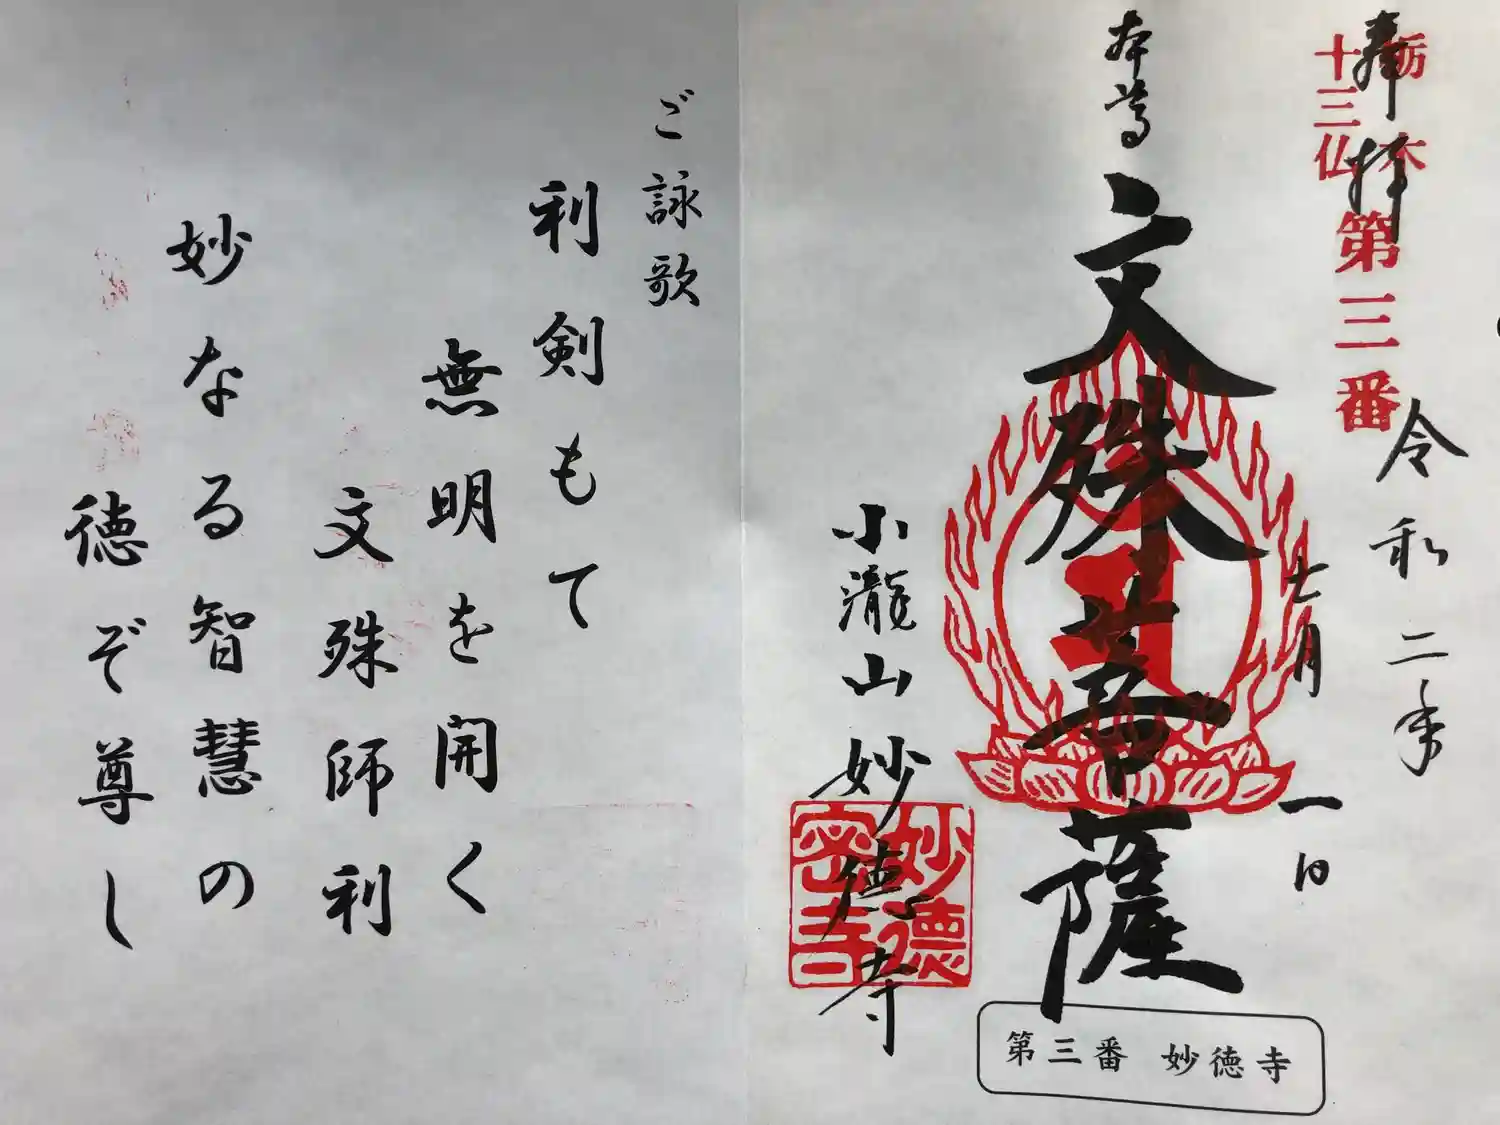 奉拝
栃木
十三仏
第三番
令和二年
七月一日
本尊
文殊菩薩
小瀧山妙徳寺
第三番 妙徳寺
ご詠歌
利剣もて
無明を開く
文殊師利
妙なる智慧の
徳ぞ尊し